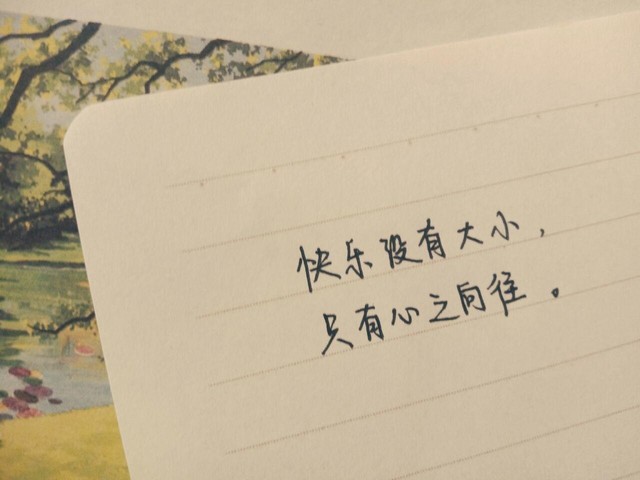 快乐没有大小，
只有心之向往。